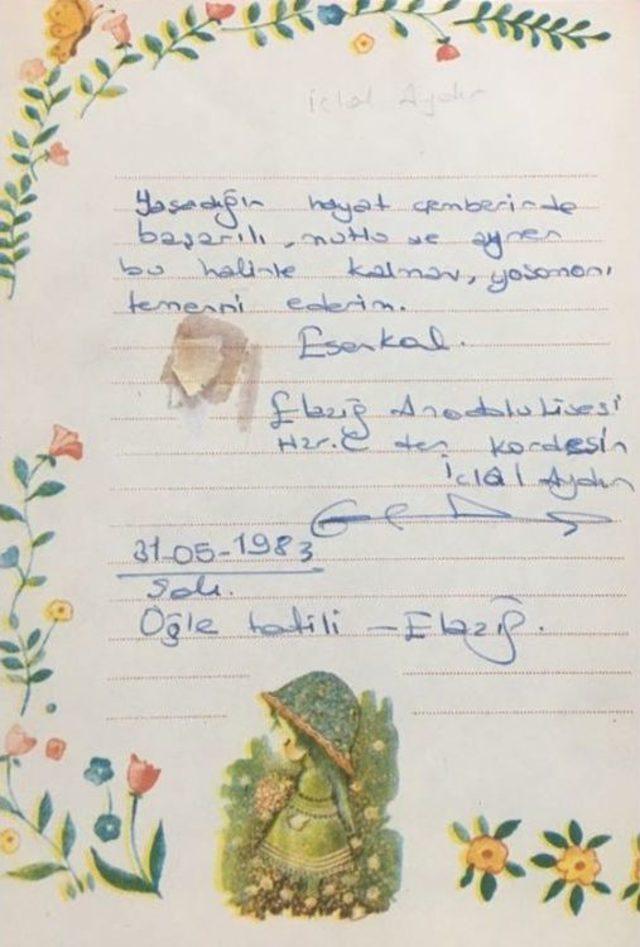 İclal Aydın
Yaşadığın hayat çemberinde
başarılı, mutlu ve aynen
bu halinle kalman, yaşamanı
temenni ederim.
Esenkal.
Elazığ Anadolu Lisesi
Hzr. C den kardeşin
İclal Aydın
31-05-1983
Salı.
Öğle tatili - Elazığ.